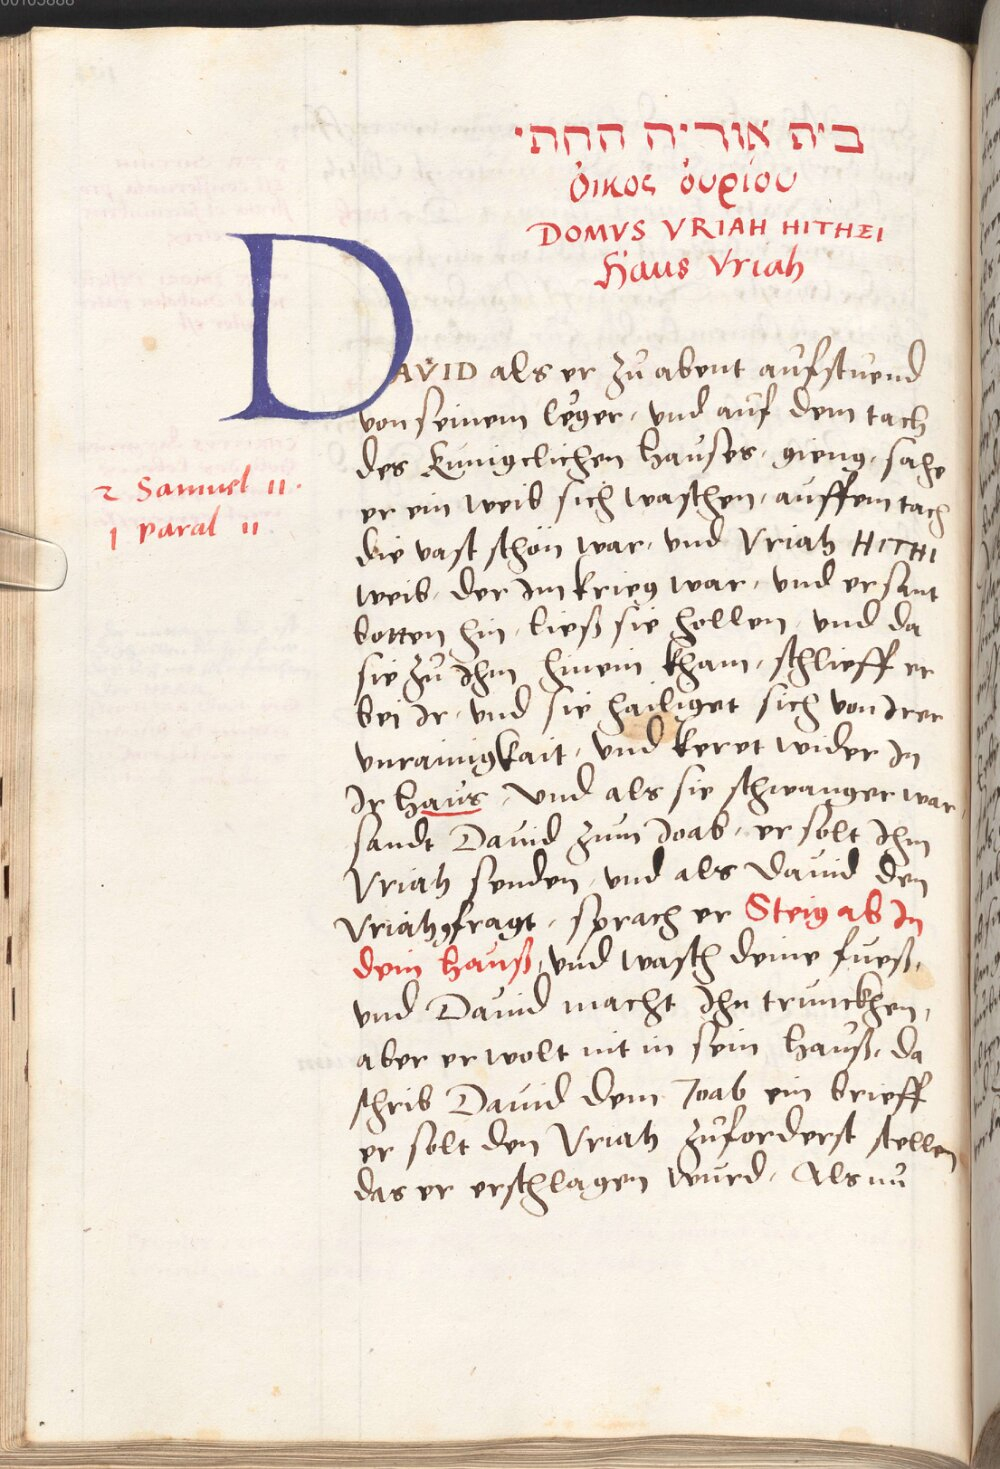 בית אוריה החתי
ὀικος ὀυρίου
DOMVS VRIAH HITHEI
Haus Vriah
DAVID als er zů abent aůfstůend
von seinem leger, vnd aůf dem tach
des kunigclichen haůses, gieng, sahe
er ein weib sich waschen, auffem tach
die vast schön war, vnd Vriah HITHI
weib, der im krieg war, vnd er sant
botten hin, ließ sie hollen, vnd da
sie zů Ihm hinein kham, schlieff er
bei Ir, vnd sie hailiget sich von Irer
vnrainigkait, vnd keret wider In
Ir haůs, Vnd als sie schwanger war,
sandt Dauid zum Ioab, er solt Ihm
Vriah senden, vnd als Dauid den
Vriah gfragt, sprach er Steig ab In
dein haůß, vnd wasch deine fueß,
vnd Dauid macht Ihn trunckhen,
aber er wolt nit in sein haůß, da
schrib Dauid dem Ioab ein brieff
er solt den Vriah zůforderst stellen
das er erschlagen wůrd, Als nů
2 Samuel 11.
1 paral 11
00103888